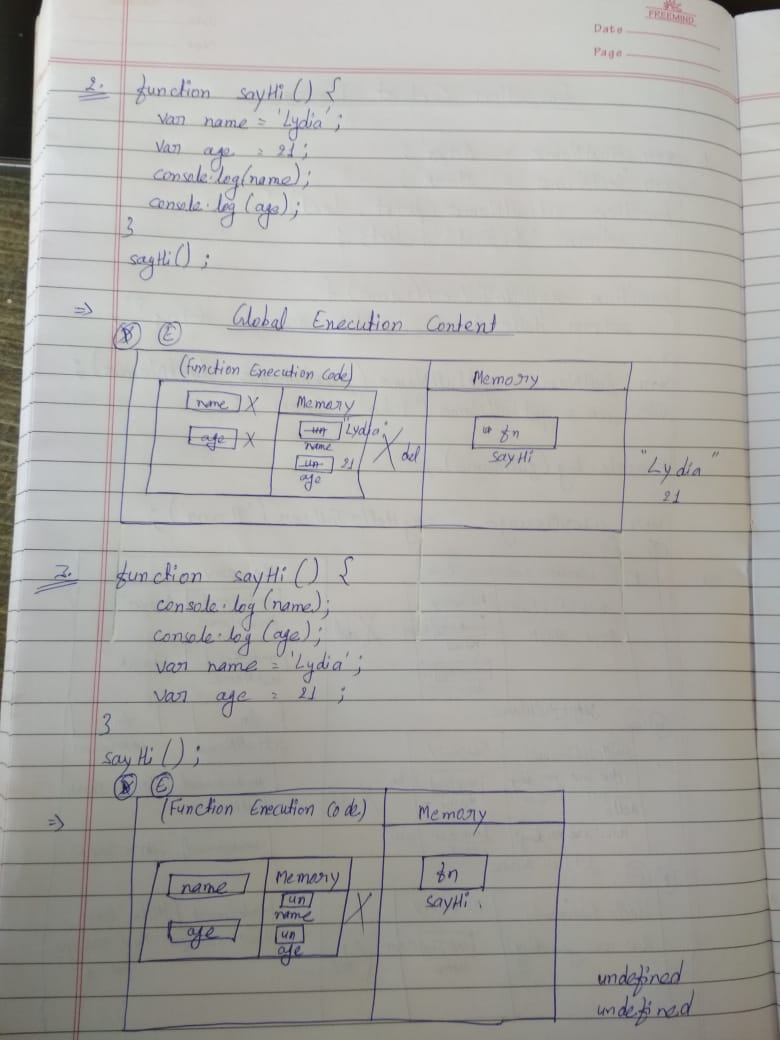 FREEMIND
Date
Page
2. function sayHi () {
var name = 'Lydia';
var age = 21;
console.log(name);
console.log(age);
}
sayHi();
⇒ Global Execution Content
D E
(Function Execution Code) Memory
name X Memory
un "Lydia"
name
age X
un 21
age
X del
fn
sayHi
"Lydia"
21
3. function sayHi () {
console.log(name);
console.log(age);
var name = 'Lydia';
var age = 21;
}
sayHi();
D E
⇒ (Function Execution Code) Memory
name Memory
un
name
age un
age
X
fn
sayHi.
undefined
undefined